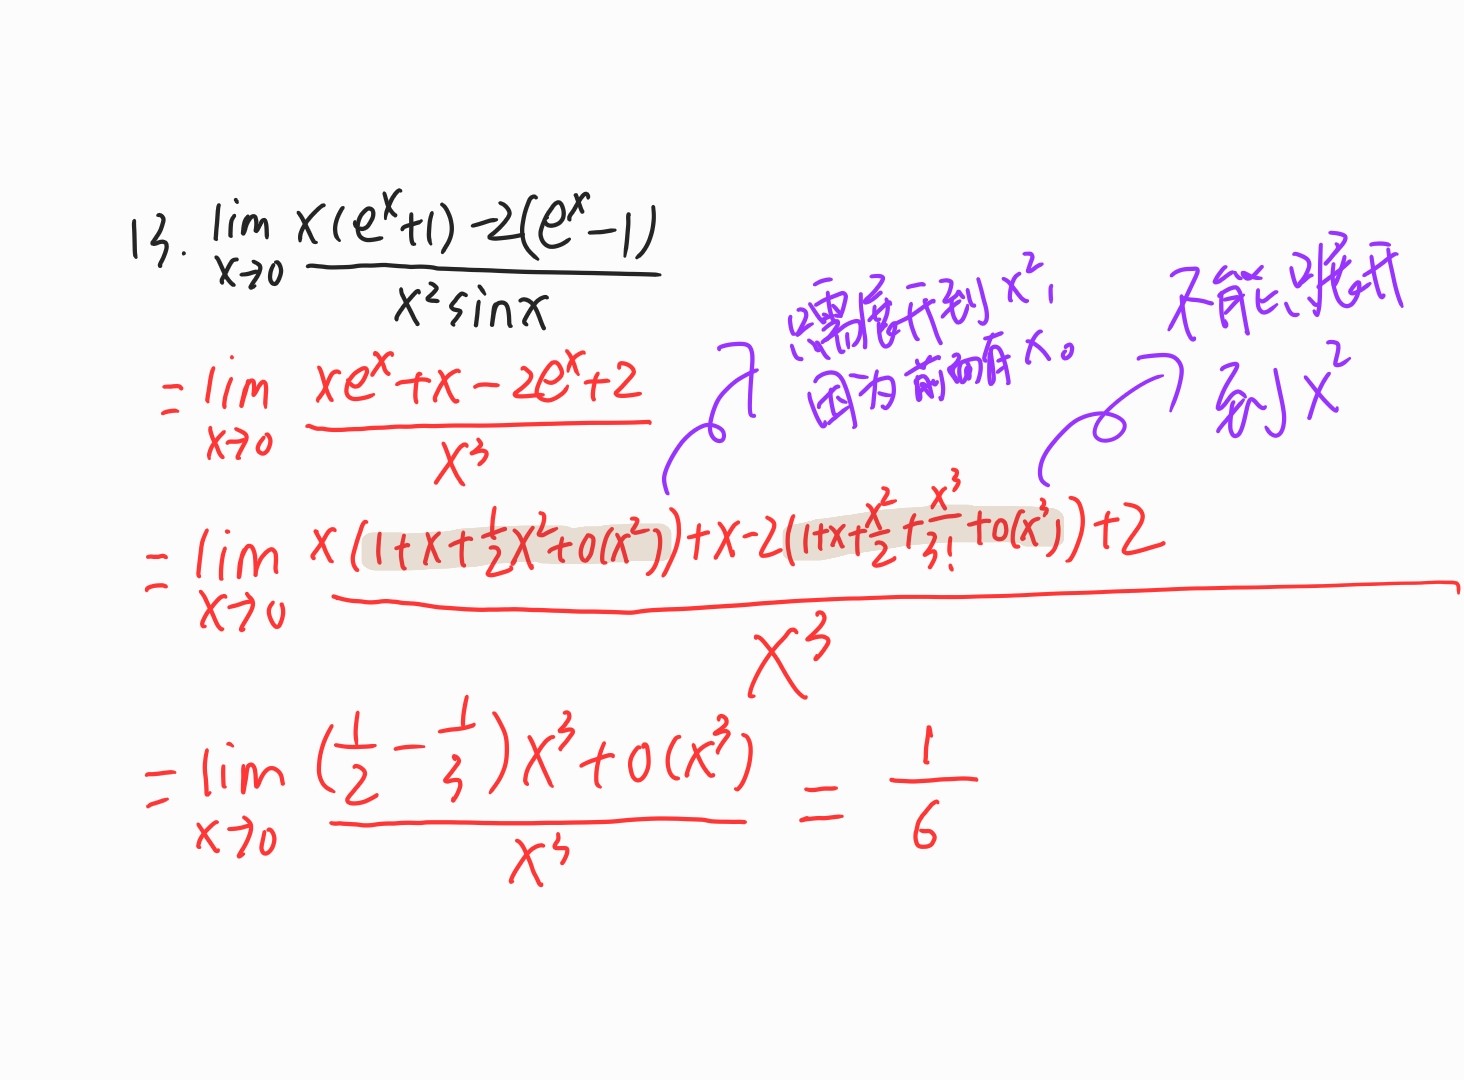 13. lim x→0 x(eˣ+1)-2(eˣ-1) / x²sinx
= lim x→0 xeˣ+x-2eˣ+2 / x³
只需展开到x²,
因为前面有x。
不能只展开
到x²
= lim x→0 x(1+x+½x²+o(x²))+x-2(1+x+x²/2+x³/3!+o(x³))+2 / x³
= lim x→0 (1/2-1/3)x³+o(x³) / x³ = 1/6